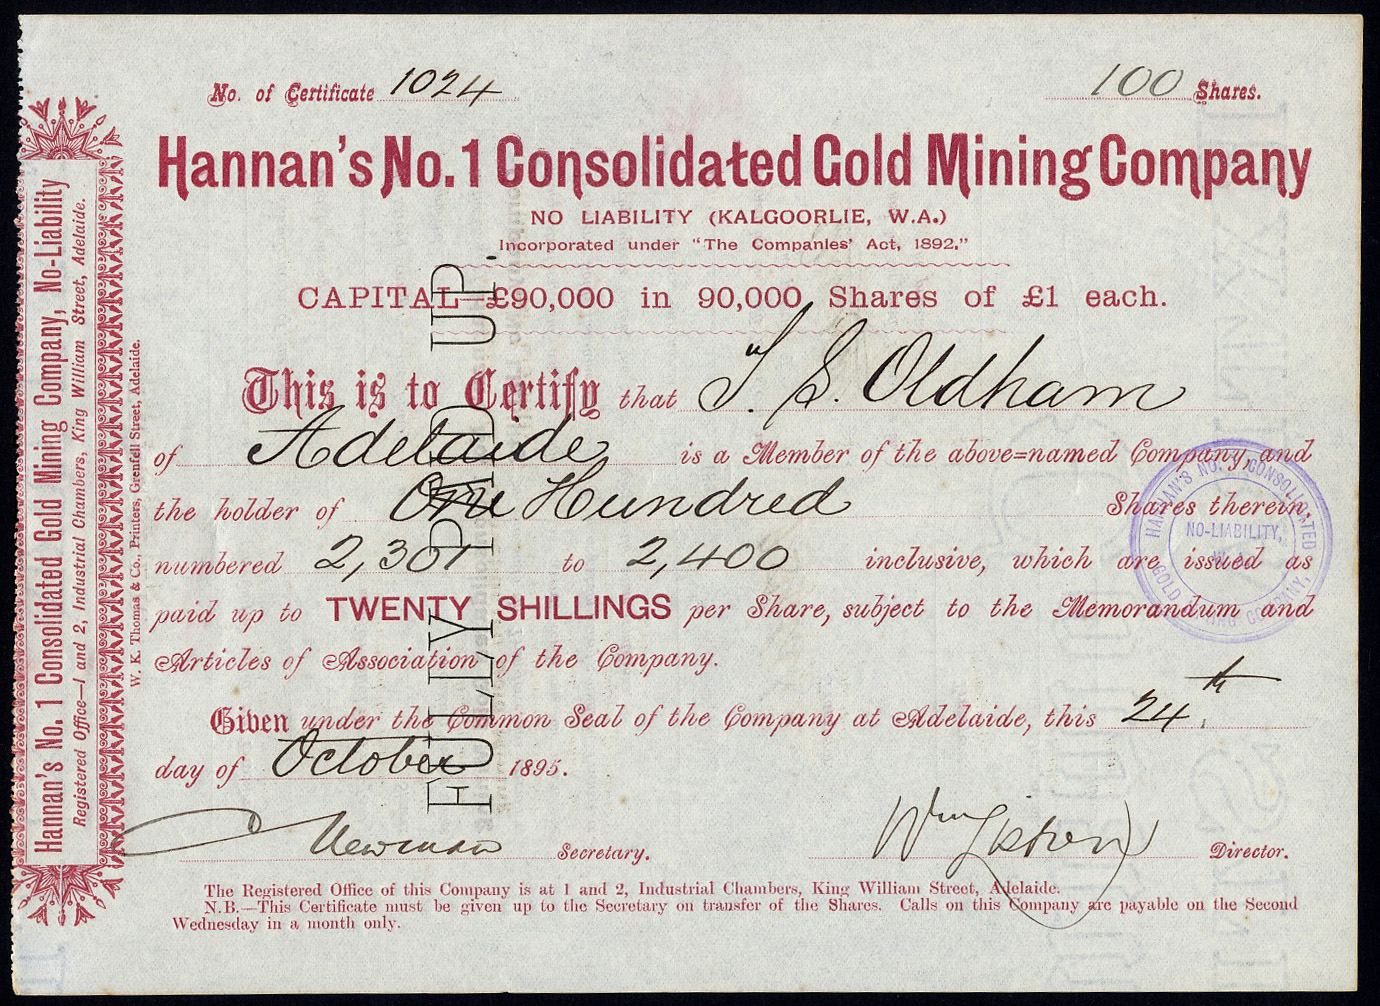 No. of Certificate 1024
100 Shares.
Hannan's No. 1 Consolidated Gold Mining Company
NO LIABILITY (KALGOORLIE, W.A.)
Incorporated under "The Companies' Act, 1892."
CAPITAL—£90,000 in 90,000 Shares of £1 each.
This is to Certify that T. S. Oldham
of Adelaide is a Member of the above=named Company, and
the holder of One Hundred Shares therein,
numbered 2,301 to 2,400 inclusive, which are issued as
paid up to TWENTY SHILLINGS per Share, subject to the Memorandum and
Articles of Association of the Company.
Given under the Common Seal of the Company at Adelaide, this 24th
day of October 1895.
Newman Secretary.
Wm Director.
The Registered Office of this Company is at 1 and 2, Industrial Chambers, King William Street, Adelaide.
N.B.—This Certificate must be given up to the Secretary on transfer of the Shares. Calls on this Company are payable on the Second
Wednesday in a month only.
FULLY PAID UP.
Hannan's No. 1 Consolidated Gold Mining Company, No-Liability
Registered Office—1 and 2, Industrial Chambers, King William Street, Adelaide.
W. K. Thomas & Co., Printers, Grenfell Street, Adelaide.
HANNAN'S NO. 1 CONSOLIDATED
GOLD MINING COMPANY,
NO-LIABILITY,